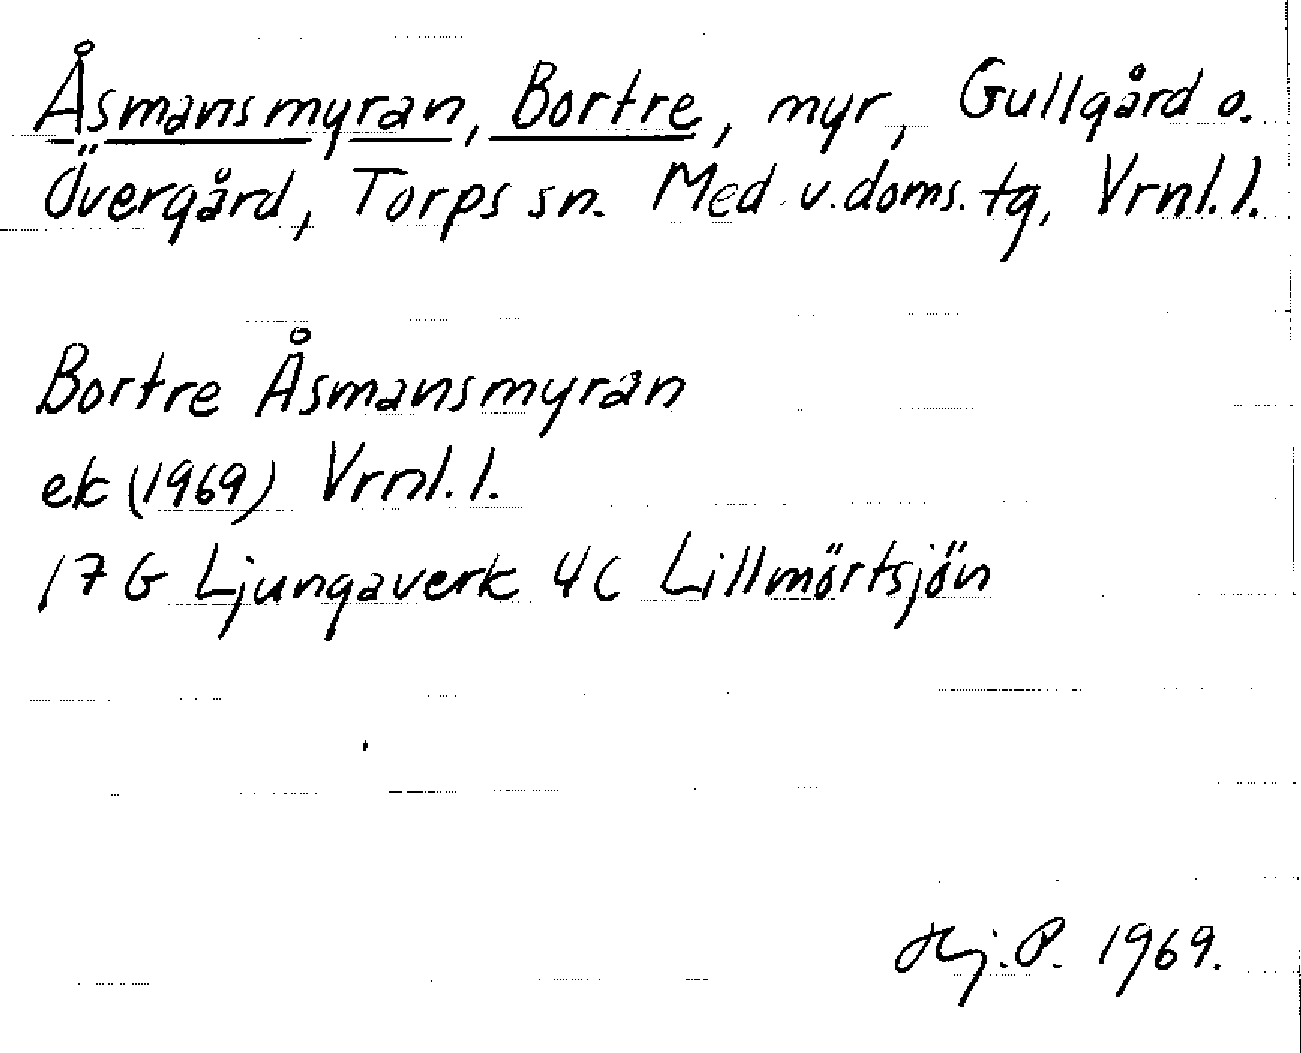 Åsmansmyran, Bortre, myr, Gullgård o.
Övergård, Torps sn. Med v.doms. tg, Vrnl.l.
Bortre Åsmansmyran
ek (1969) Vrnl.l.
17 G Ljungaverk 4c Lillmörtsjön
Hj.P. 1969.